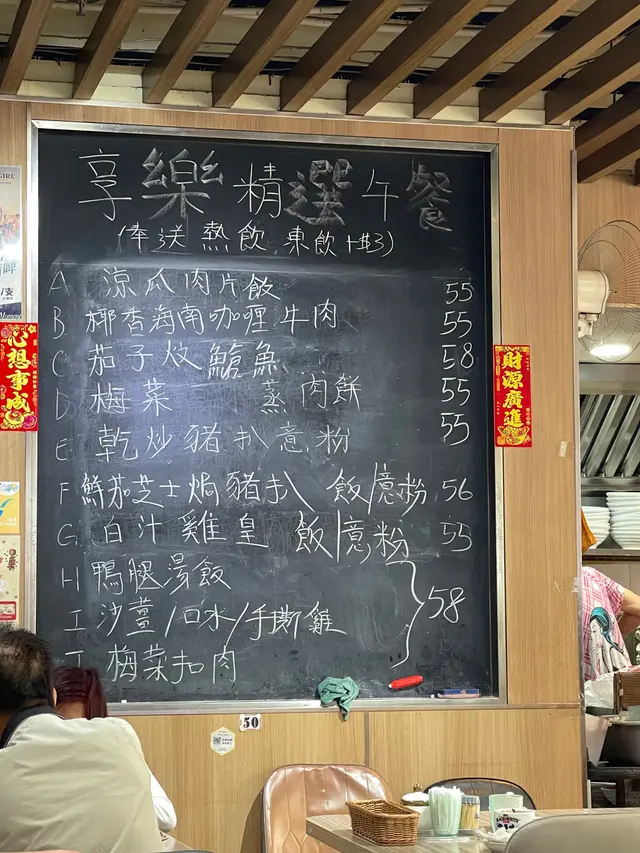 享樂精選午餐
(奉送熱飲,凍飲+$3)
A 涼瓜肉片飯 55
B 椰香海南咖喱牛肉 55
C 茄子炆鯰魚 58
D 梅菜蒸肉餅 55
E 乾炒豬扒意粉 55
F 鮮茄芝士焗豬扒 飯/意粉 56
G 白汁雞皇 飯/意粉 55
H 鴨腿湯飯
I 沙薑/口水/手撕雞 58
J 梅菜扣肉
心想事成
財源廣進
50